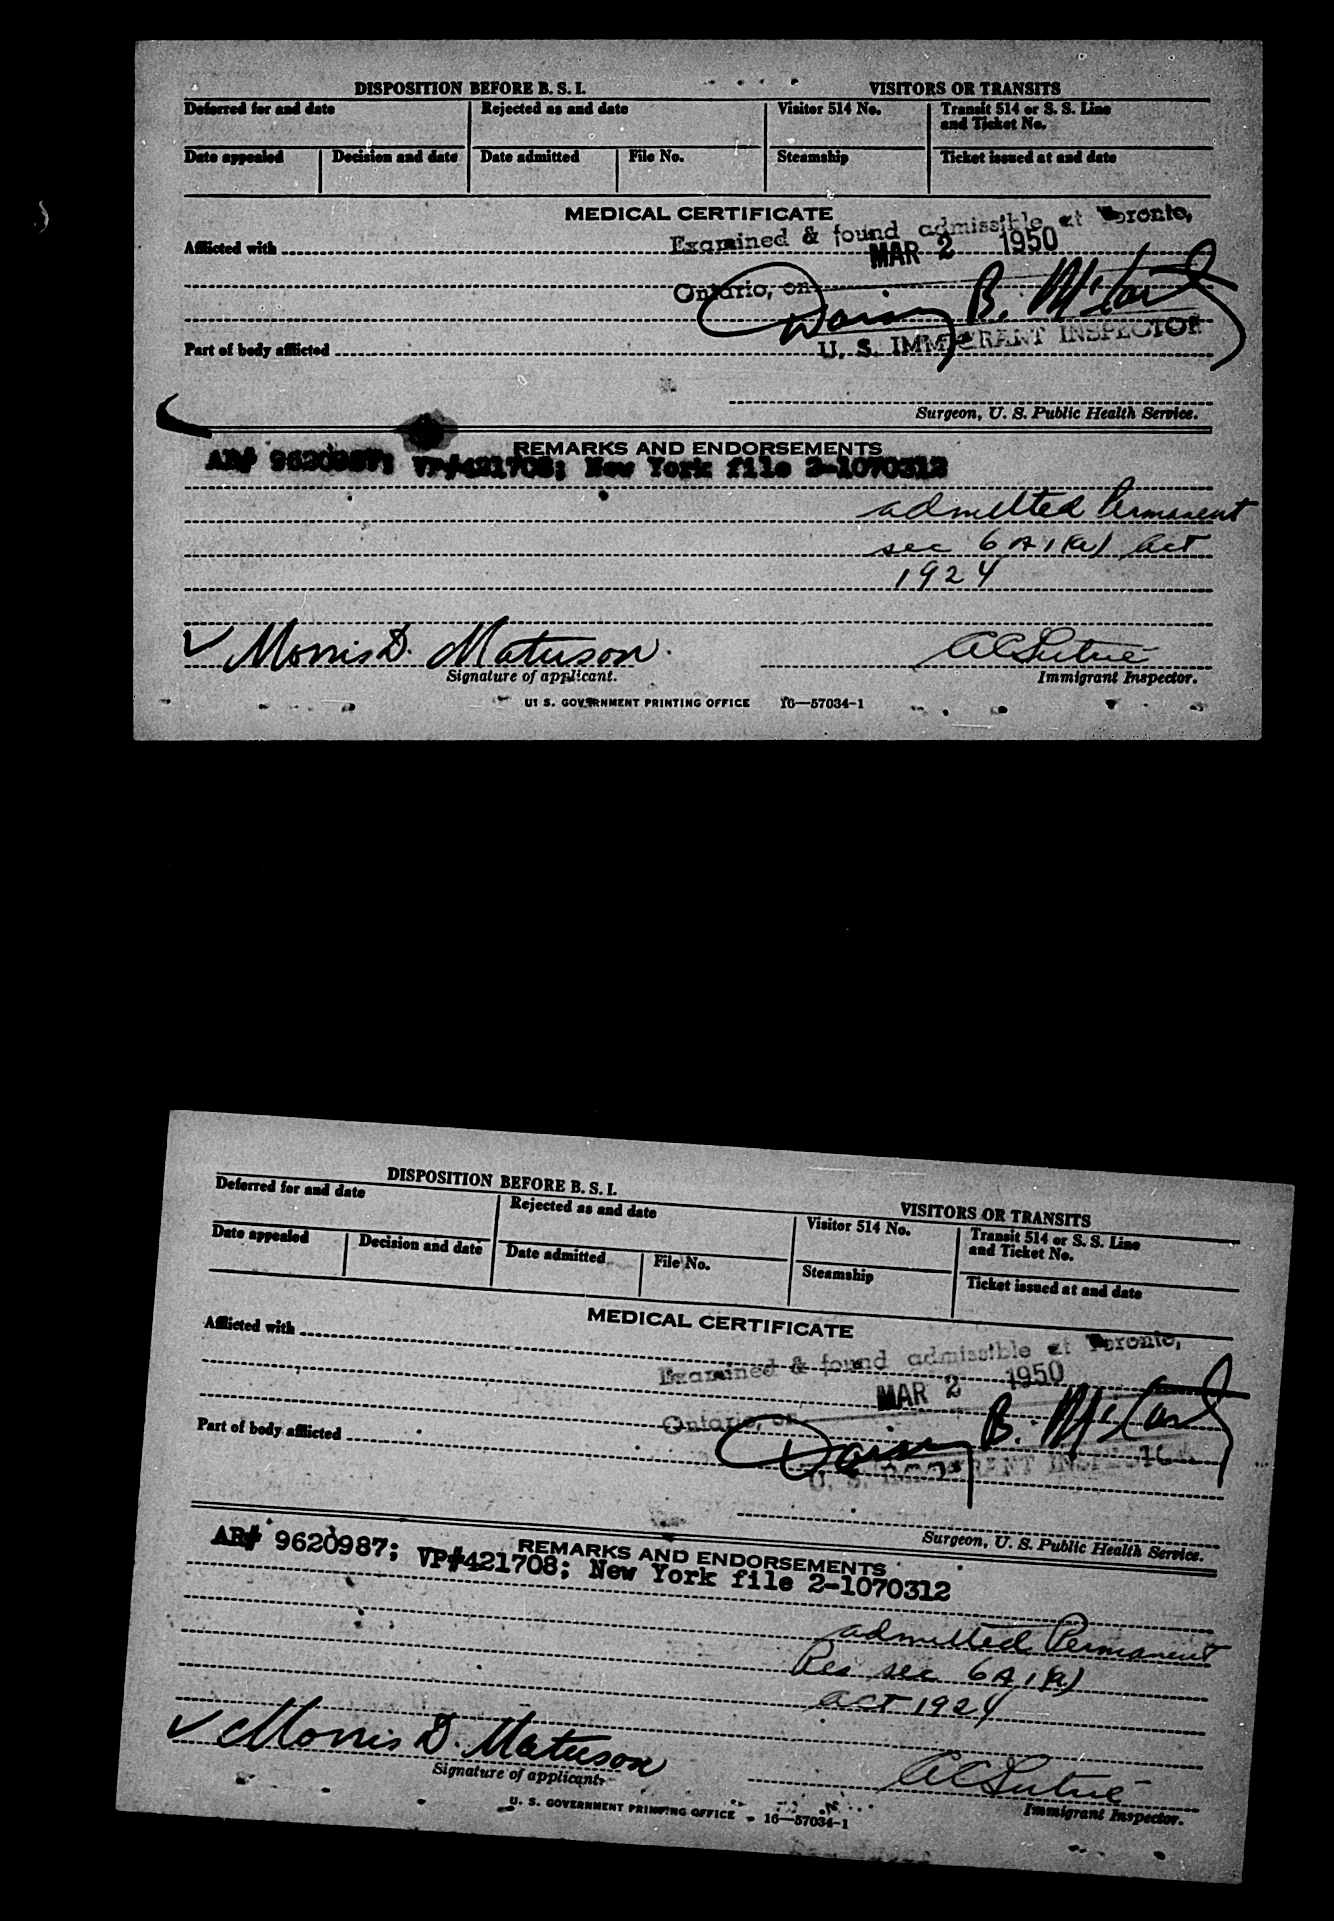 DISPOSITION BEFORE B. S. I.
VISITORS OR TRANSITS
Deferred for and date
Rejected as and date
Visitor 514 No.
Transit 514 or S. S. Line
and Ticket No.
Date appealed
Decision and date
Date admitted
File No.
Steamship
Ticket issued at and date
MEDICAL CERTIFICATE
Examined & found admissible at Toronto,
Afflicted with
MAR 2 1950
Ontario, on
Daisy B. McCarty
U. S. IMMIGRANT INSPECTOR
Part of body afflicted
Surgeon, U. S. Public Health Service.
REMARKS AND ENDORSEMENTS
AR# 9620987; VP#421708; New York file 2-1070312
admitted Permanent
sec 6 A 1(a) Act
1924
✓ Morris D. Matuson.
Signature of applicant.
Immigrant Inspector.
U. S. GOVERNMENT PRINTING OFFICE 16—57034-1
DISPOSITION BEFORE B. S. I.
VISITORS OR TRANSITS
Deferred for and date
Rejected as and date
Visitor 514 No.
Transit 514 or S. S. Line
and Ticket No.
Date appealed
Decision and date
Date admitted
File No.
Steamship
Ticket issued at and date
MEDICAL CERTIFICATE
Afflicted with
Examined & found admissible at Toronto,
MAR 2 1950
Ontario, on
Daisy B. McCarty
U. S. IMMIGRANT INSPECTOR
Part of body afflicted
Surgeon, U. S. Public Health Service.
REMARKS AND ENDORSEMENTS
AR# 9620987; VP#421708; New York file 2-1070312
admitted Permanent
Res sec 6 A 1(a)
act 1924
✓ Morris D. Matuson
Signature of applicant.
Immigrant Inspector.
U. S. GOVERNMENT PRINTING OFFICE 16—57034-1